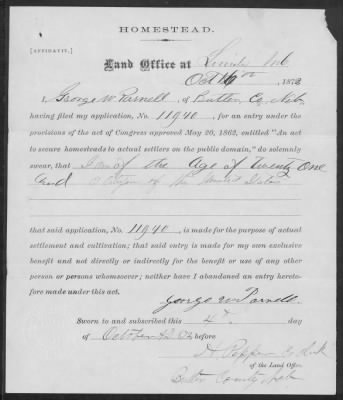 HOMESTEAD.
[AFFIDAVIT.]
Land Office at Lincoln Neb
Oct 1872
I, George W. Parnell, of Butler Co, Neb.
having filed my application, No. 11940, for an entry under the
provisions of the act of Congress approved May 20, 1862, entitled "An act
to secure homesteads to actual settlers on the public domain," do solemnly
swear, that I am of the Age of twenty one
and a Citizen of the United States
that said application, No. 11940, is made for the purpose of actual
settlement and cultivation; that said entry is made for my own exclusive
benefit and not directly or indirectly for the benefit or use of any other
person or persons whomsoever; neither have I abandoned an entry hereto-
fore made under this act.
George W Parnell
Sworn to and subscribed this 4th day
of October before
Clerk
of the Land Office.
County Neb